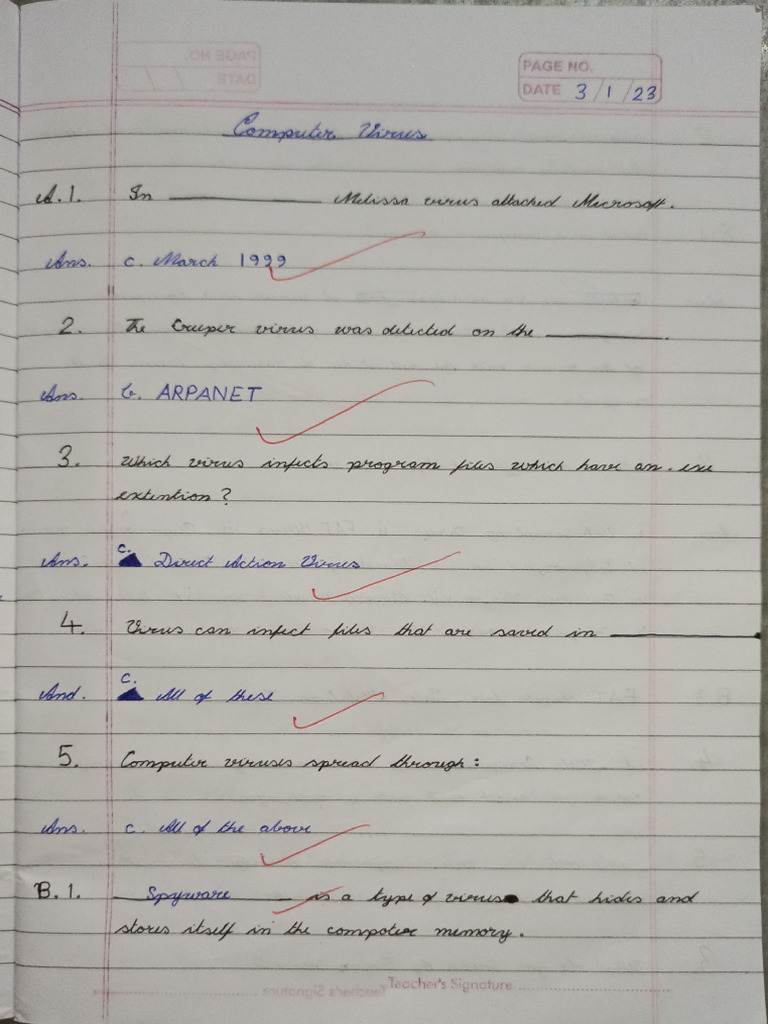 PAGE NO.
DATE 3/1/23
Computer Virus
A.1. In ________ Melissa virus attached Microsoft.
Ans. c. March 1999
2. The Creeper virus was detected on the ________.
Ans. b. ARPANET
3. Which virus infects program files which have an .exe
extention?
Ans. c. Direct Action Virus
4. Virus can infect files that are saved in ________
And. c. All of these
5. Computer viruses spread through:
Ans. c. All of the above
B.1. Spyware is a type of virus that hides and
stores itself in the computer memory.
Teacher's Signature